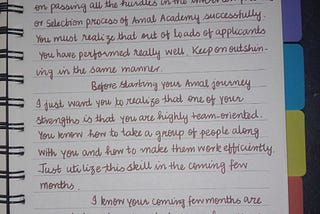 on passing all the hurdles in the
or Selection process of Amal Academy successfully.
You must realize that out of loads of applicants
you have performed really well. Keep on outshin-
ing in the same manner.
Before starting your Amal journey
I just want you to realize that one of your
strengths is that you are highly team-oriented.
You know how to take a group of people along
with you and how to make them work efficiently.
Just utilize this skill in the coming few
months.
I know your coming few months are